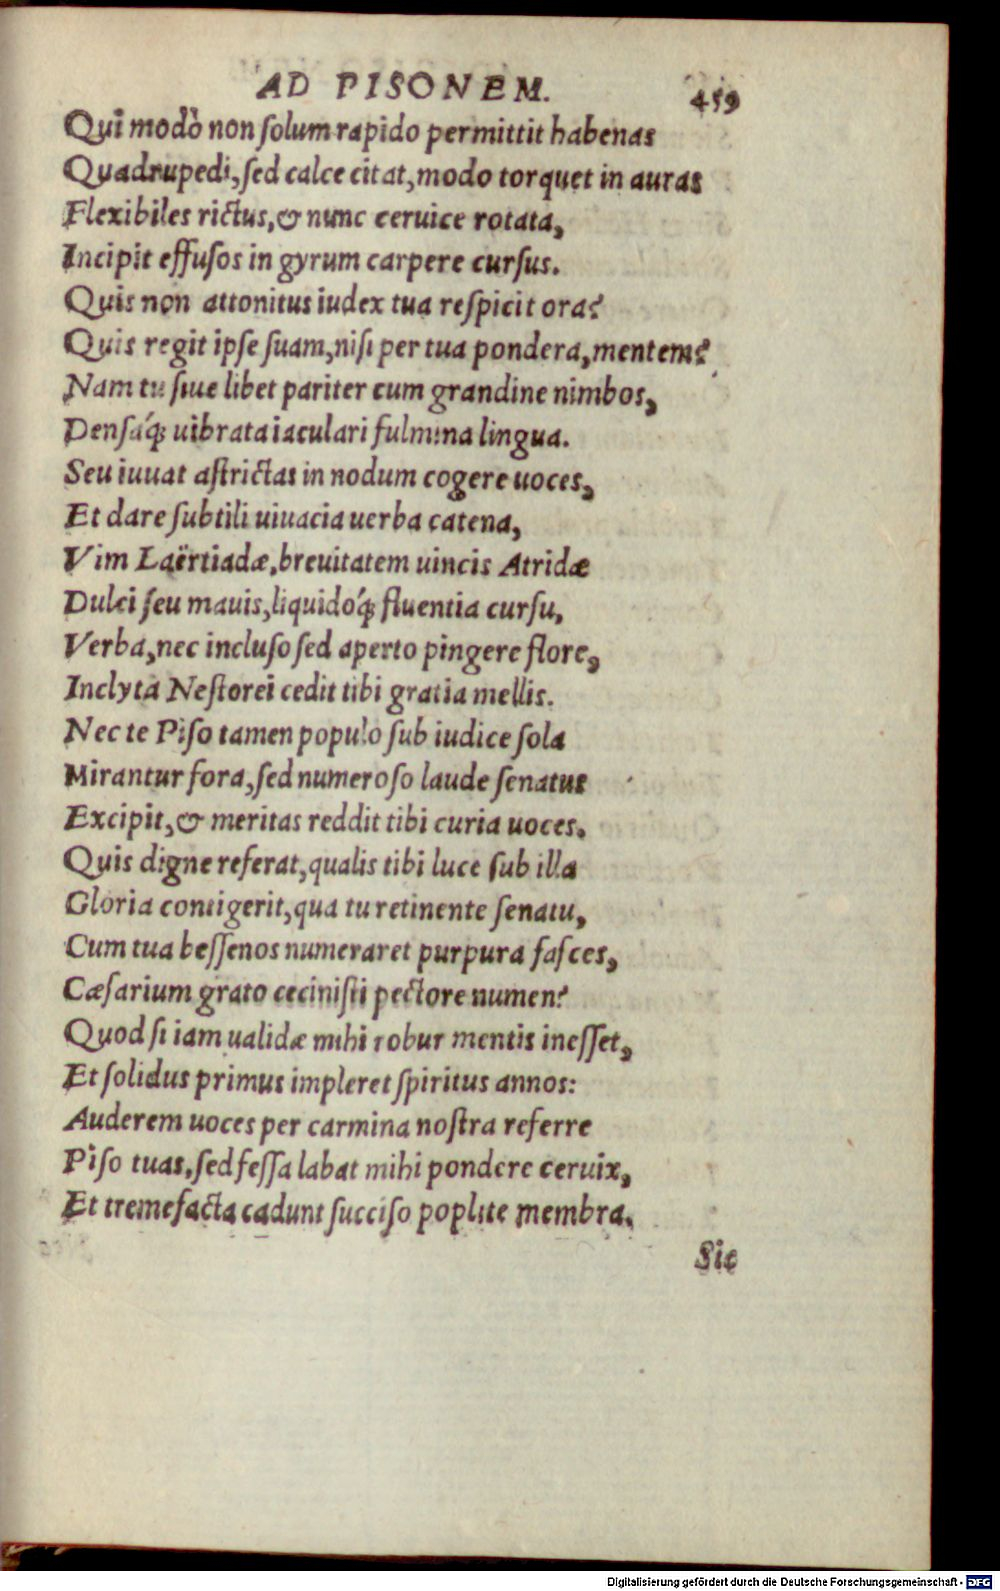 AD PISONEM. 459
Qui modò non ſolum rapido permittit habenas
Quadrupedi, ſed calce citat, modo torquet in auras
Flexibiles rictus, & nunc ceruice rotata,
Incipit effuſos in gyrum carpere curſus.
Quis non attonitus iudex tua reſpicit ora?
Quis regit ipſe ſuam, niſi per tua pondera, mentem?
Nam tu ſiue libet pariter cum grandine nimbos,
Denſáq; uibrata iaculari fulmina lingua.
Seu iuuat aſtrictas in nodum cogere uoces,
Et dare ſubtili uiuacia uerba catena,
Vim Laërtiadæ, breuitatem uincis Atridæ
Dulci ſeu mauis, liquidóq; fluentia curſu,
Verba, nec incluſo ſed aperto pingere flore,
Inclyta Neſtorei cedit tibi gratia mellis.
Nec te Piſo tamen populo ſub iudice ſola
Mirantur fora, ſed numeroſo laude ſenatus
Excipit, & meritas reddit tibi curia uoces.
Quis digne referat, qualis tibi luce ſub illa
Gloria contigerit, qua tu retinente ſenatu,
Cum tua beſſenos numeraret purpura faſces,
Cæſarium grato ceciniſti pectore numen?
Quod ſi iam ualidæ mihi robur mentis ineſſet,
Et ſolidus primus impleret ſpiritus annos:
Auderem uoces per carmina noſtra referre
Piſo tuas, ſed feſſa labat mihi pondere ceruix,
Et tremefacta cadunt ſucciſo poplite membra.
Sic
Digitalisierung gefördert durch die Deutsche Forschungsgemeinschaft - DFG